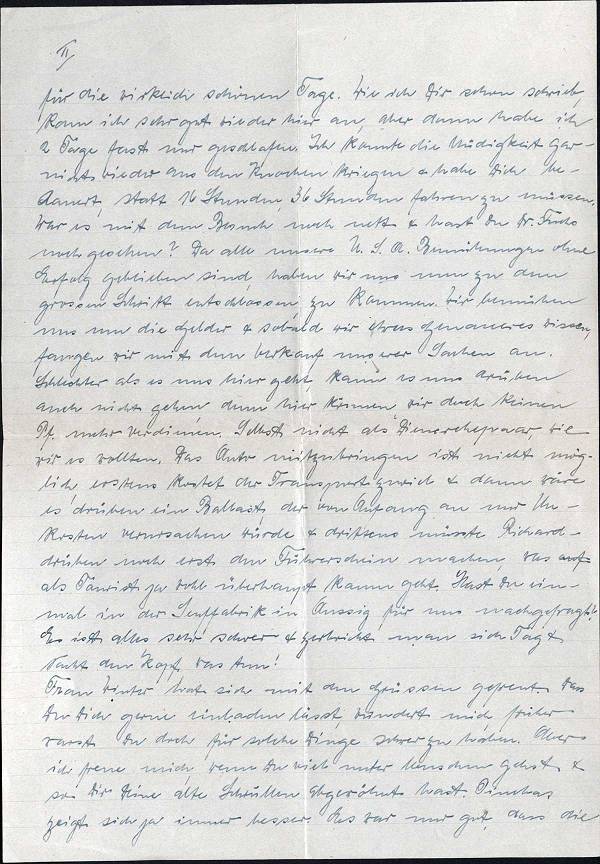 II
für die wirklich schönen Tage. Wie ich Dir schon schrieb,
kam ich sehr gut wieder hier an, aber dann habe ich
2 Tage fast nur geschlafen. Ich konnte die Müdigkeit gar-
nicht wieder aus den Knochen kriegen & habe Dich be-
dauert, statt 16 Stunden, 36 Stunden fahren zu müssen.
War es mit dem Besuch noch nett & hast Du Dr. Fuchs
noch gesehen? Da alle unsere U.S.A. Bemühungen ohne
Erfolg geblieben sind, haben wir uns nun zu dem
grossen Schritt entschlossen, zu kommen. Wir bemühen
uns um die Gelder & sobald wir etwas Genaueres wissen,
fangen wir mit dem Verkauf unserer Sachen an.
Schlechter als es uns hier geht kann es uns drüben
auch nicht gehen denn hier können wir doch keinen
Pf. mehr verdienen. Selbst nicht als Dienerehepaar, wie
wir es wollten. Das Auto mitzubringen ist nicht mög-
lich, erstens kostet der Transport zuviel & dann wäre
es drüben ein Ballast der von Anfang an nur Un-
kosten verursachen würde & drittens müsste Richard
drüben noch erst den Führerschein machen, was
als Tourist ja wohl überhaupt kaum geht. Hast Du ein-
mal in der Senffabrik in Aussig für uns nachgefragt?
Es ist alles sehr schwer & zerbricht man sich Tag &
Nacht den Kopf, was tun!
Frau Winter hat sich mit den Grüssen gefreut. Das
Du Dich gerne einladen lässt, wundert mich, früher
warst Du doch für solche Dinge schwer zu haben. Aber
ich freue mich wenn Du viel unter Menschen gehst &
so Dir Deine alte Schrullen abgewöhnt hast.
zeigt sich ja immer besser. Es war nur gut, dass die